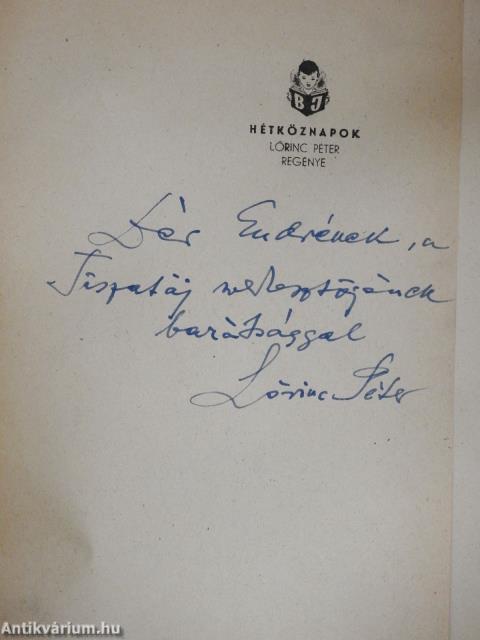 B J
HÉTKÖZNAPOK
LŐRINC PÉTER
REGÉNYE
Dér Endrének, a
Tiszatáj szerkesztőjének
barátsággal
Lőrinc Péter
Antikvárium.hu